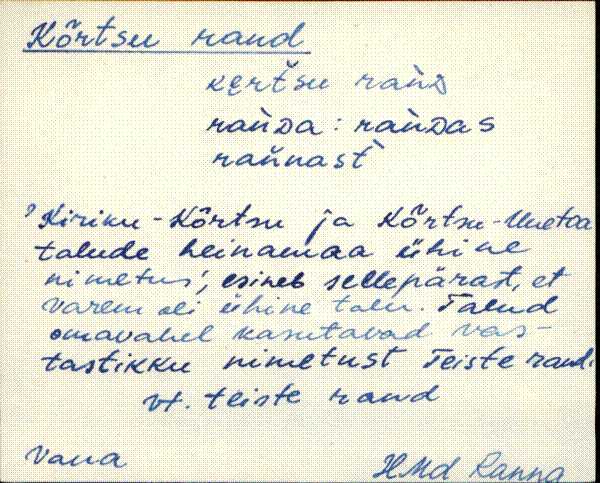 Kõrtsu rand
kɐrtšu ràǹD
ràǹDa : ràǹDas
ràǹnast
'Kiriku-Kõrtsu ja Kõrtsu-Uuetoa
talude heinamaa ühine
nimetus', esineb sellepärast, et
varem oli ühine talu. Talud
omavahel kasutavad vas-
tastikku nimetust Teiste rand.
vt. teiste rand
Vana
HMd Ranna